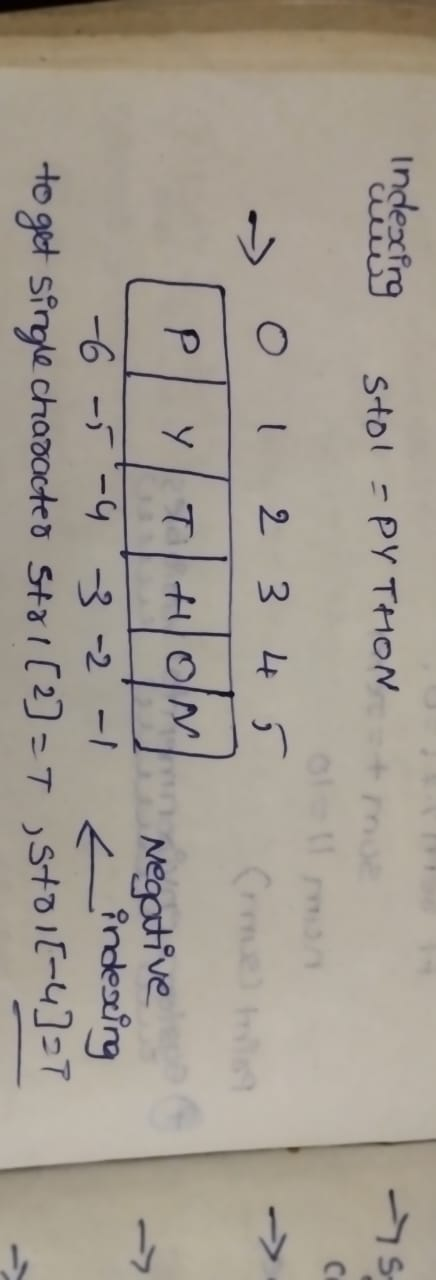 Indexing Str1 = PYTHON
→ 0 1 2 3 4 5
P Y T H O N
-6 -5 -4 -3 -2 -1
Negative
← indexing
to get single character Str1[2] = T, Str1[-4] = T